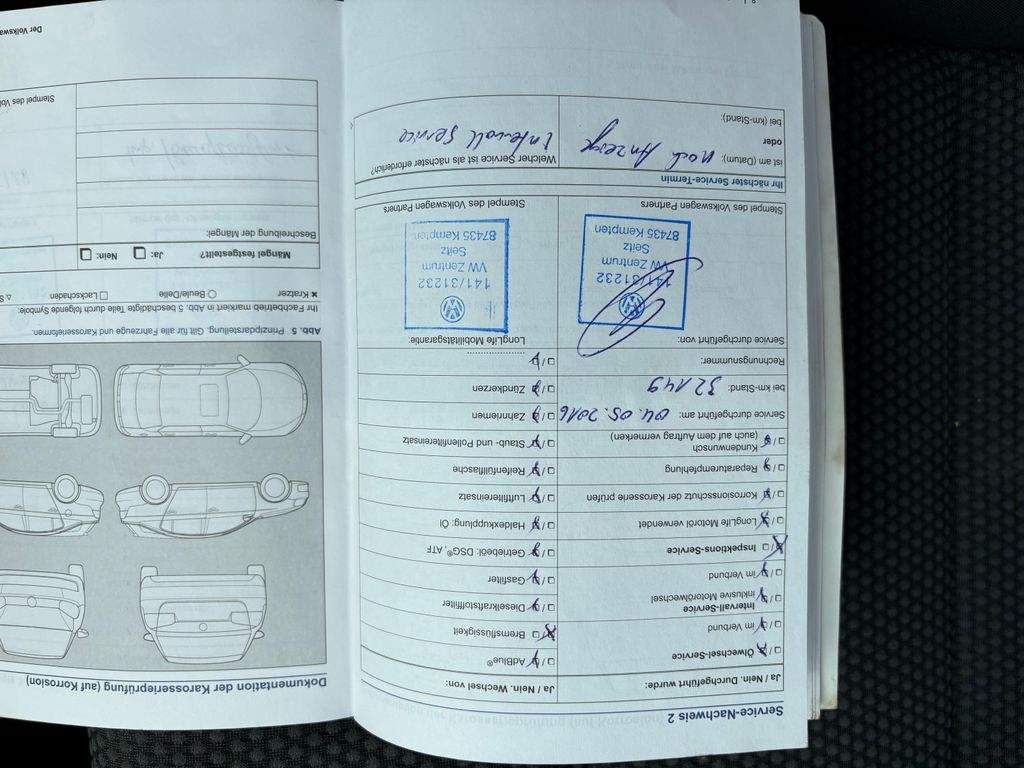 Service-Nachweis 2
Ja / Nein. Durchgeführt wurde:
Ja / Nein. Wechsel von:
Ölwechsel-Service
im Verbund
Intervall-Service
inklusive Motorölwechsel
im Verbund
Inspektions-Service
LongLife Motoröl verwendet
Korrosionsschutz der Karosserie prüfen
Reparaturempfehlung
Kundenwunsch
(auch auf dem Auftrag vermerken)
AdBlue®
Bremsflüssigkeit
Dieselkraftstofffilter
Gasfilter
Getriebeöl: DSG®, ATF
Haldexkupplung: Öl
Luftfiltereinsatz
Reifenfüllflasche
Staub- und Pollenfiltereinsatz
Zahnriemen
Zündkerzen
Service durchgeführt am: 04. 05. 2016
bei km-Stand: 32149
Rechnungsnummer:
Service durchgeführt von:
141/31232
VW Zentrum
Seitz
87435 Kempten
Stempel des Volkswagen Partners
LongLife Mobilitätsgarantie:
141/31232
VW Zentrum
Seitz
87435 Kempten
Stempel des Volkswagen Partners
Ihr nächster Service-Termin
ist am (Datum): nach Anzeige
oder
bei (km-Stand):
Welcher Service ist als nächster erforderlich?
Intervall Service
Dokumentation der Karosserieprüfung (auf Korrosion)
Abb. 5 Prinzipdarstellung: Gilt für alle Fahrzeuge und Karosserieformen.
Ihr Fachbetrieb markiert in Abb. 5 beschädigte Teile durch folgende Symbole:
Kratzer
Beule/Delle
Lackschaden
Mängel festgestellt? Ja: Nein:
Beschreibung der Mängel:
Stempel des
Der